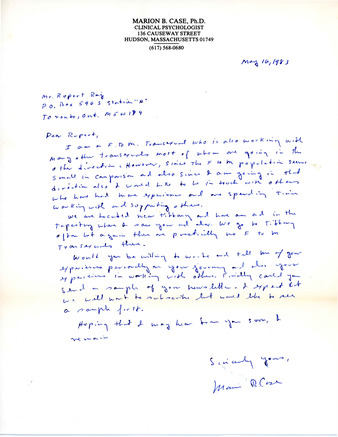 MARION B. CASE, Ph.D.
CLINICAL PSYCHOLOGIST
136 CAUSEWAY STREET
HUDSON, MASSACHUSETTS 01749
(617) 568-0680
May 16, 1983
Mr. Rupert Raj
P.O. Box 5963 Station "A"
Toronto, Ont. M5W 1P4
Dear Rupert,
I am a F to M. Transexual who is also working with
many other Transexuals most of whom are going in the
other direction. However, since the F to M population seems
small in comparison and also since I am going in that
direction also I would like to be in touch with others
who have had more experience and are spending time
working with and supporting others.
We are located near Tiffany and have an ad in the
Tapestry where I saw your ad also. We go to Tiffany
often but again there are practically no F to M
Transexuals there.
Would you be willing to write and tell me of your
experience personally on your journey and also your
experience in working with others. Finally could you
send a sample of your newsletter. I expect that
we will want to subscribe but would like to see
a sample first.
Hoping that I may hear from you soon, I
remain
Sincerely yours,
Marion B. Case